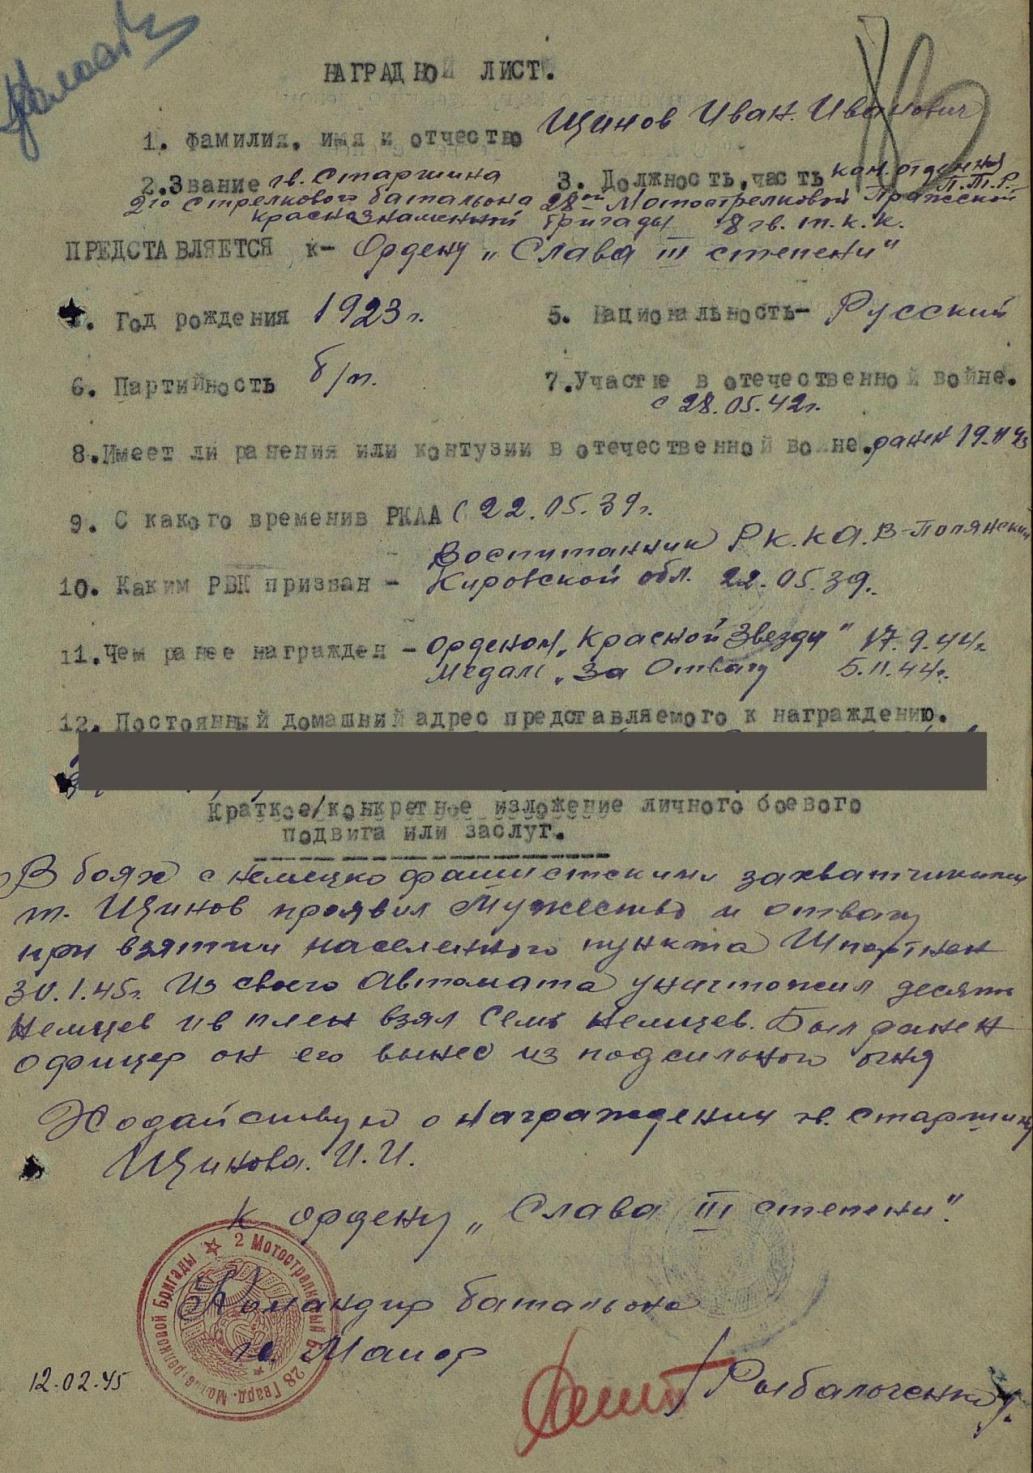 НАГРАДНОЙ ЛИСТ.
1. Фамилия, имя и отчество Щинов Иван Иванович
2. Звание гв. Старшина 3. Должность, часть ком. отделения П.Т.Р.
2го Стрелкового батальона 28ой Мотострелковой Пражской
краснознаменной бригады 8 гв. т.к.к.
ПРЕДСТАВЛЯЕТСЯ к- Ордену „Слава III степени"
Год рождения 1923 г. 5. Национальность- Русский
6. Партийность б/п. 7. Участие в отечественной войне.
с 28.05.42 г.
8. Имеет ли ранения или контузии в отечественной войне. ранен 19.11.43
9. С какого времени в РККА с 22.05.39 г.
Воспитанник РККА. В-Полянский
10. Каким РВК призван - Кировской обл. 22.05.39.
11. Чем ранее награжден - Орденом „Красной Звезды" 17.9.44 г.
Медаль „За Отвагу 5.11.44 г.
12. Постоянный домашний адрес представляемого к награждению.
Краткое/конкретное изложение личного боевого
подвига или заслуг.
В боях с немецко фашистскими захватчиками
т. Щинов проявил Мужество и отвагу
при взятии населенного пункта
30.1.45 г. Из своего Автомата уничтожил десять
немцев и в плен взял Семь немцев. Был ранен
Офицер он его вынес из под сильного огня
Ходайствую о награждении гв. старшину
Щинова. И.И.
к ордену „Слава III степени".
Командир батальона
гв. Майор
12.02.45
2 Мотострелковый 28 Гвард. Мотострелковой Бригады